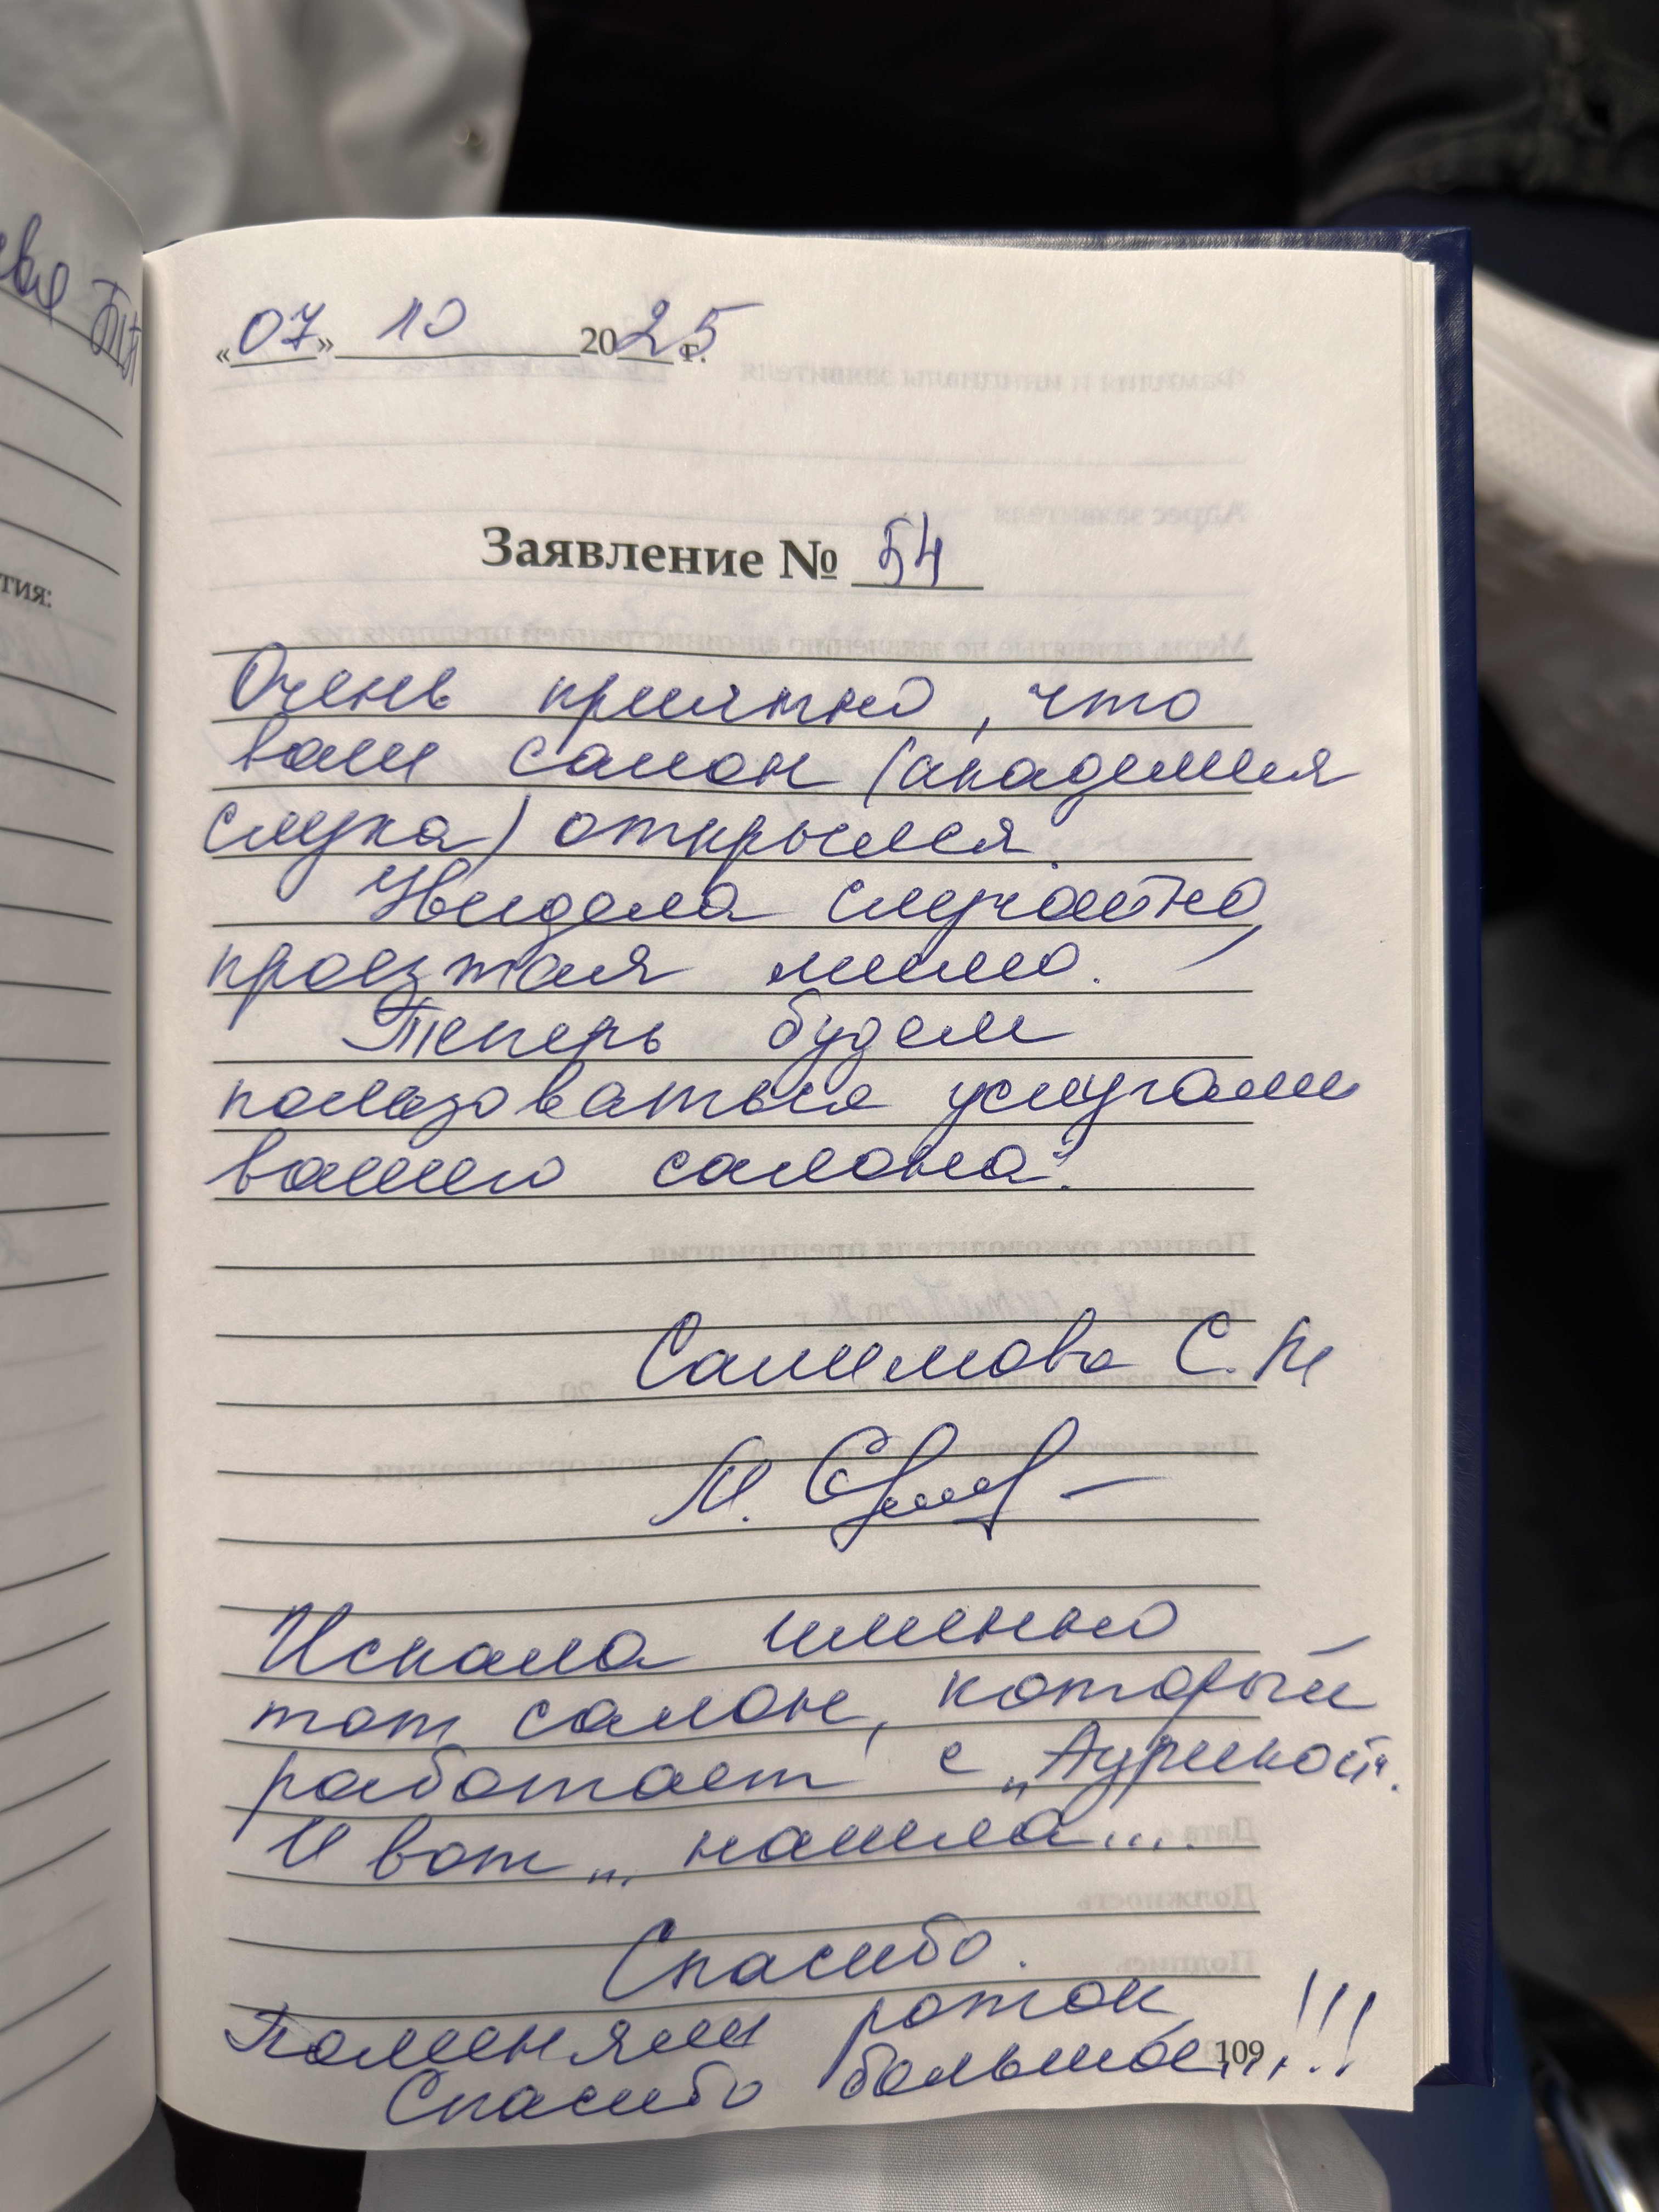 «07» 10 2025 г.
Заявление № 54
Очень приятно, что
ваш салон (академия
слуха) открылся.
Увидела случайно,
проезжая мимо.
Теперь будем
пользоваться услугами
вашего салона.
Салимова С.
М.
Искала именно
тот салон, который
работает с „Аурикой".
И вот „ нашла...
Спасибо.
Поменяли роток
Спасибо большое...!!!
109
тия: